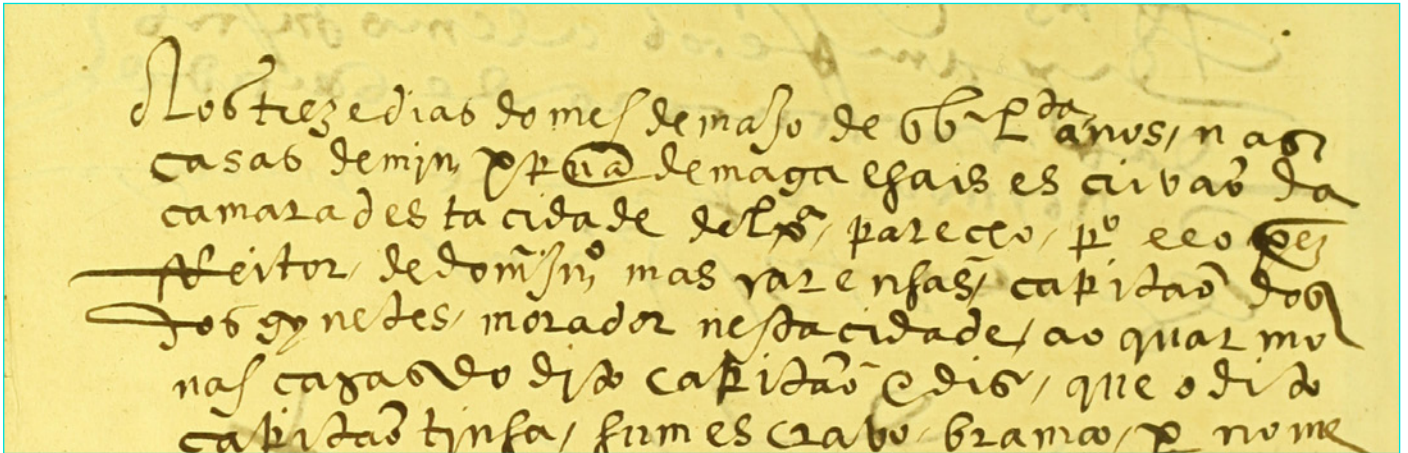 Aos treze dias do mes de março de bc Rta anos, nas
casas de min xpvã de magalhais escrivão da
camara desta cidade de lxa, pareceo, po leo
feitor, de dom jno mascarenhas, capitão dos
dos gynetes, morador nesta cidade, ao qual mo
nas casas do dito capitão e dis, que o dito
capitão tinha, hum escravo, bramco, p nome